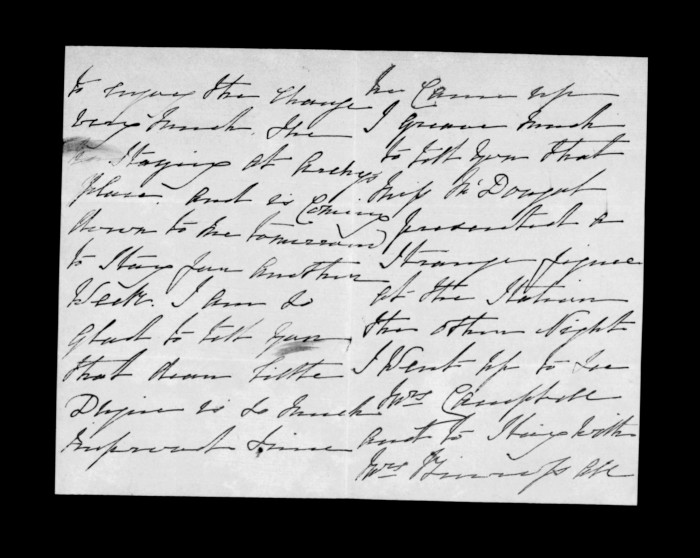 to enjoy the change
very much. She
is staying at Archys
place. and is coming
down to me tomorrow
to stay for another
week. I am so
glad to tell you
that dear little
is so much
improved since
he came up
I grieve much
to tell you that
Miss McDougal
presented a
strange figure
at the Station
the other Night
I Went up to see
Mrs Campbell
and to stay with
Mrs